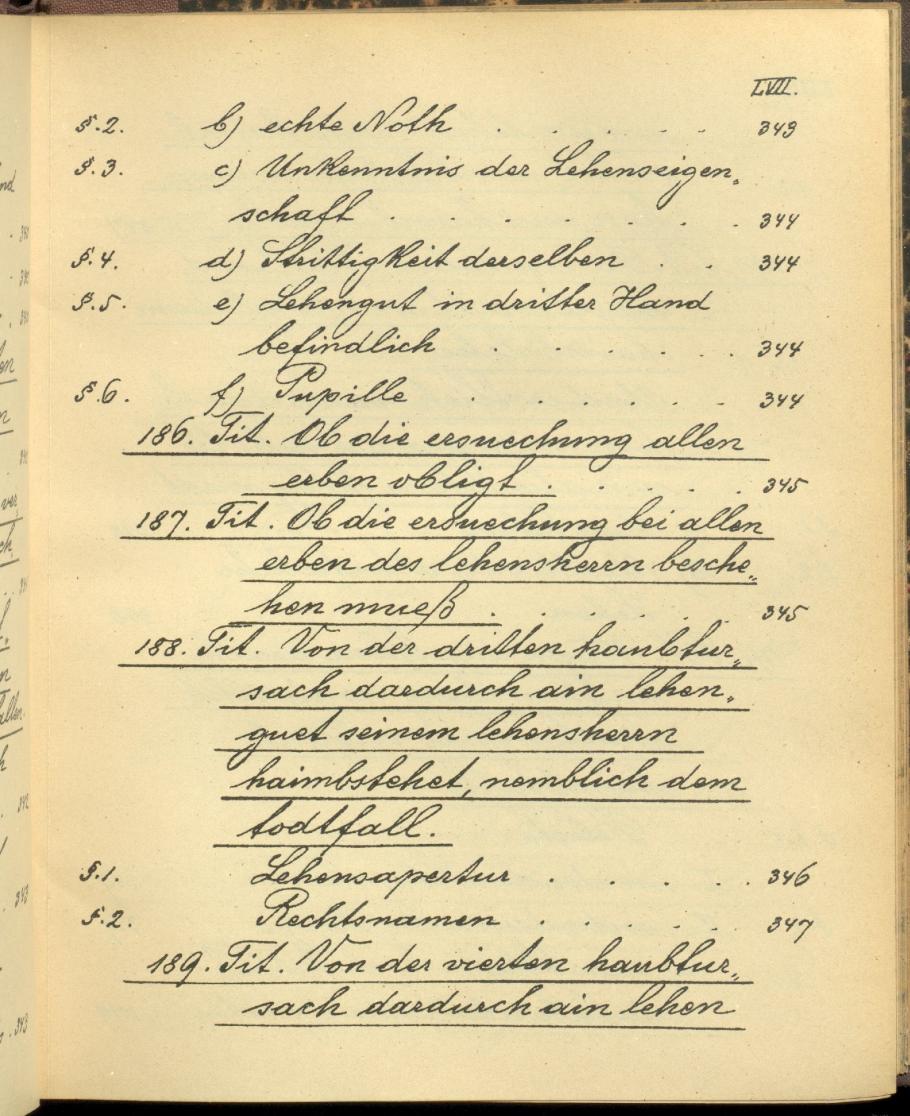 LVII.
§.2. b) echte Noth . . . . . . 343
§.3. c) Unkenntnis der Lehenseigen„
schaft . . . . . . . 344
§.4. d) Strittigkeit derselben . . 344
§.5. e) Lehengut in dritter Hand
befindlich . . . . . 344
§.6. f) Pupille . . . . . 344
186. Tit. Ob die ersuechung allen
erben obligt . . . . . 345
187. Tit. Ob die ersuechung bei allen
erben des lehensherrn besche„
hen mueß . . . . . 345
188. Tit. Von der dritten haubtur„
sach dardurch ain lehen„
guet seinem lehensherrn
haimbstehet, nemblich dem
todtfall.
§.1. Lehensapertur . . . . . 346
§.2. Rechtsnamen . . . . . 347
189. Tit. Von der vierten haubtur„
sach dardurch ain lehen